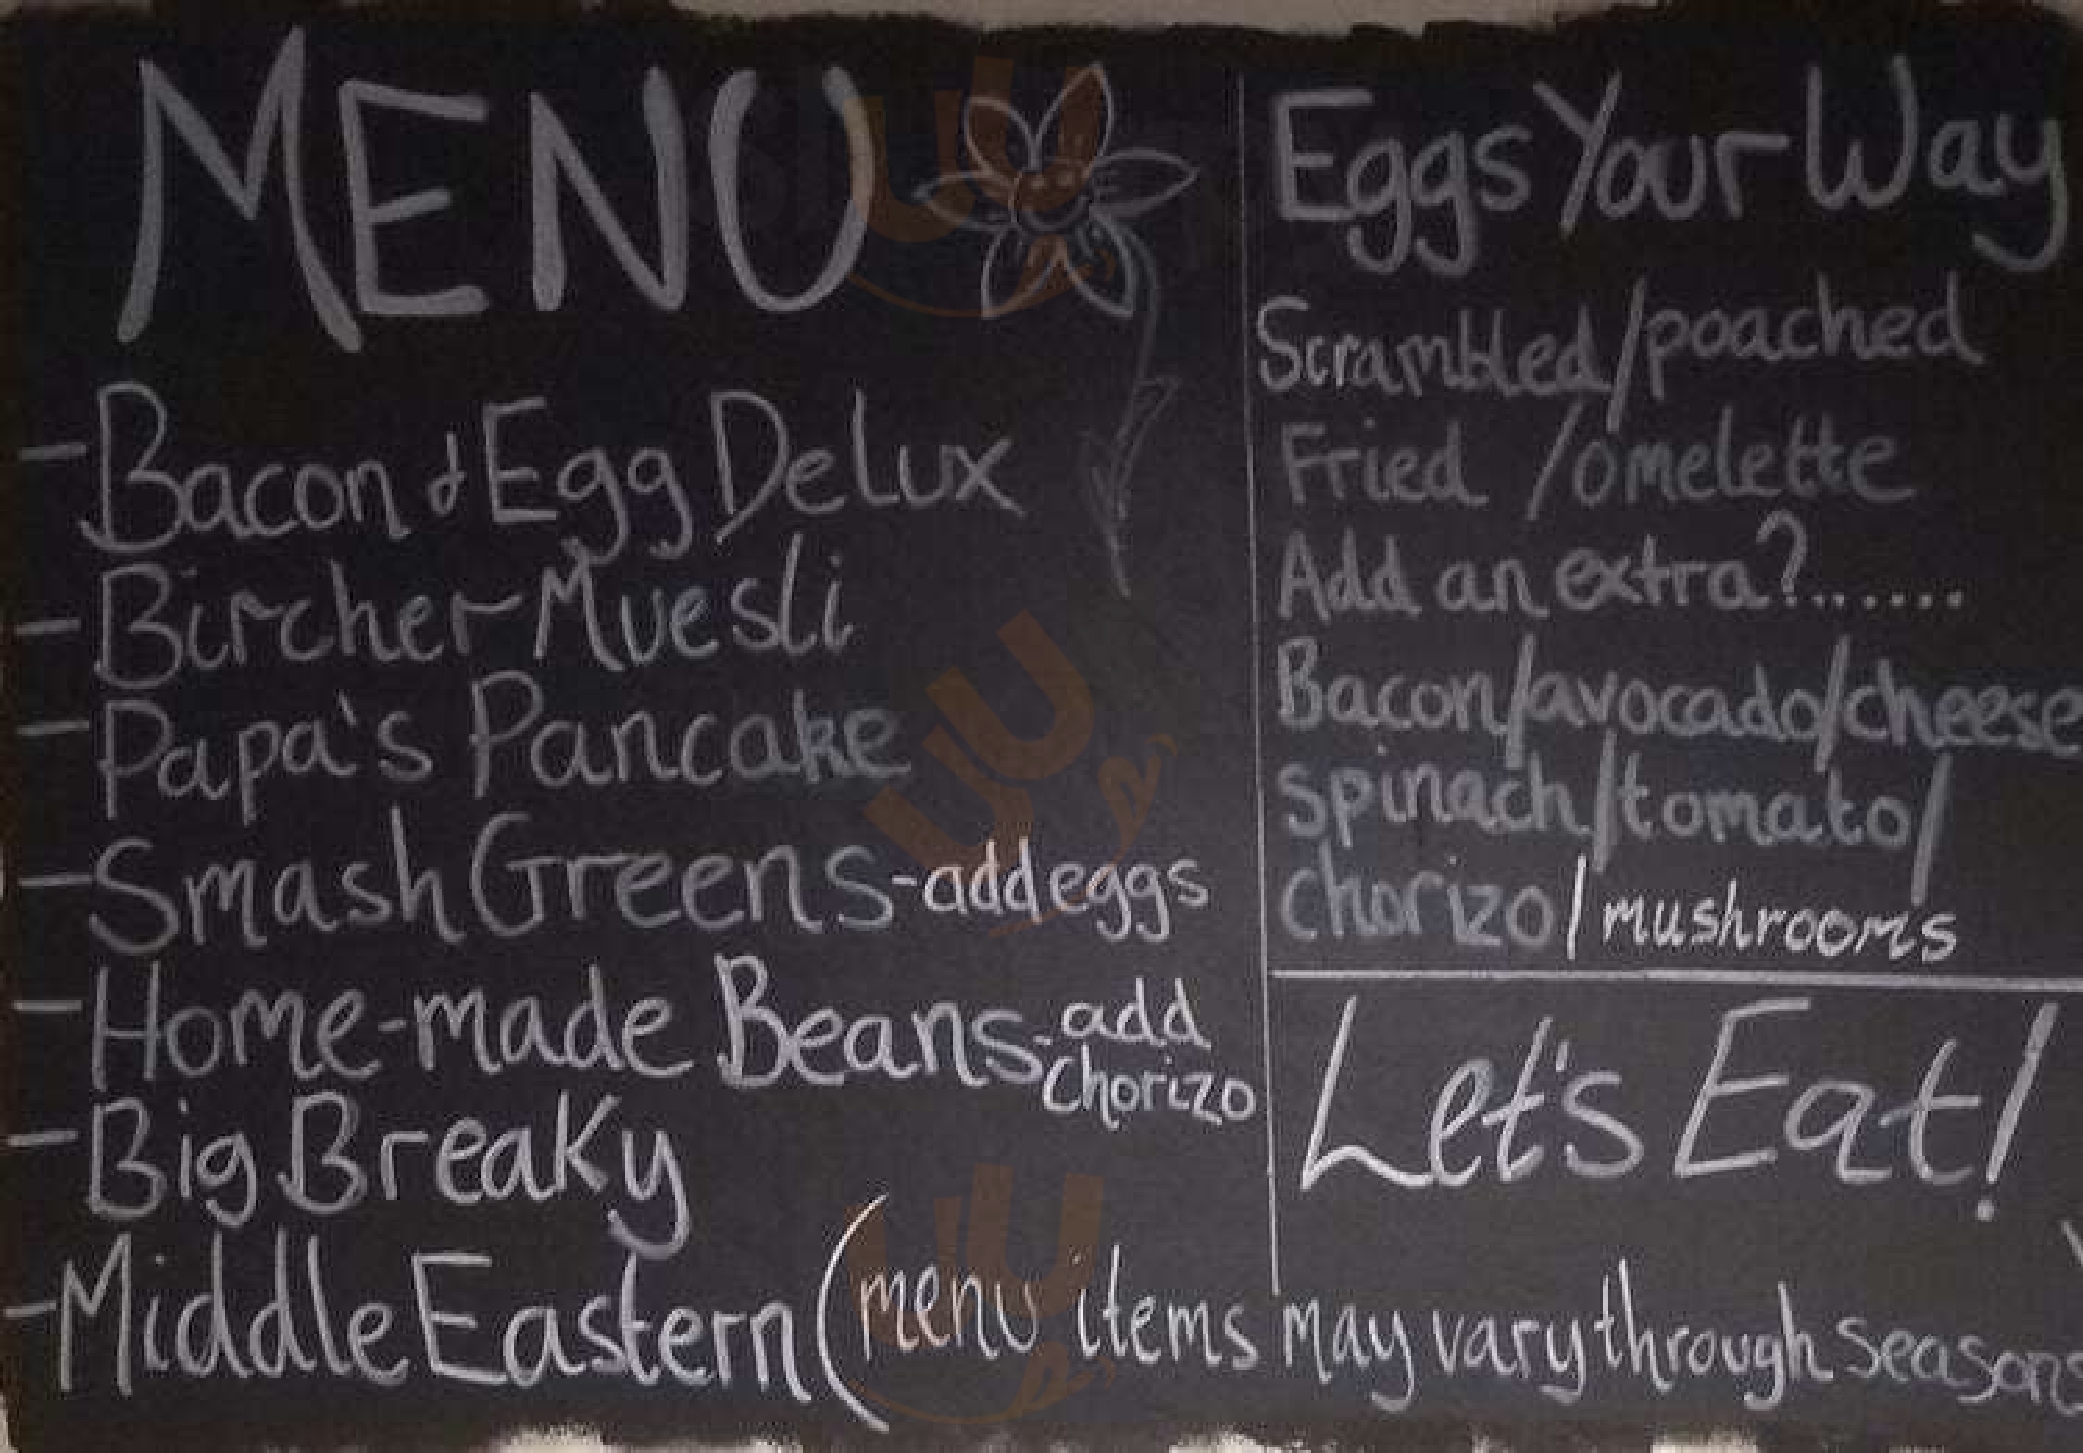 MENU
- Bacon & Egg DeLux
- Bircher Muesli
- Papa's Pancake
- Smash Greens - add eggs
- Home-made Beans - add
Chorizo
- Big Breaky
- Middle Eastern (menu items may vary through seasons)
Eggs Your Way
Scrambled/poached
Fried /omelette
Add an extra?.......
Bacon/avocado/cheese
spinach/tomato/
chorizo/mushrooms
Let's Eat!